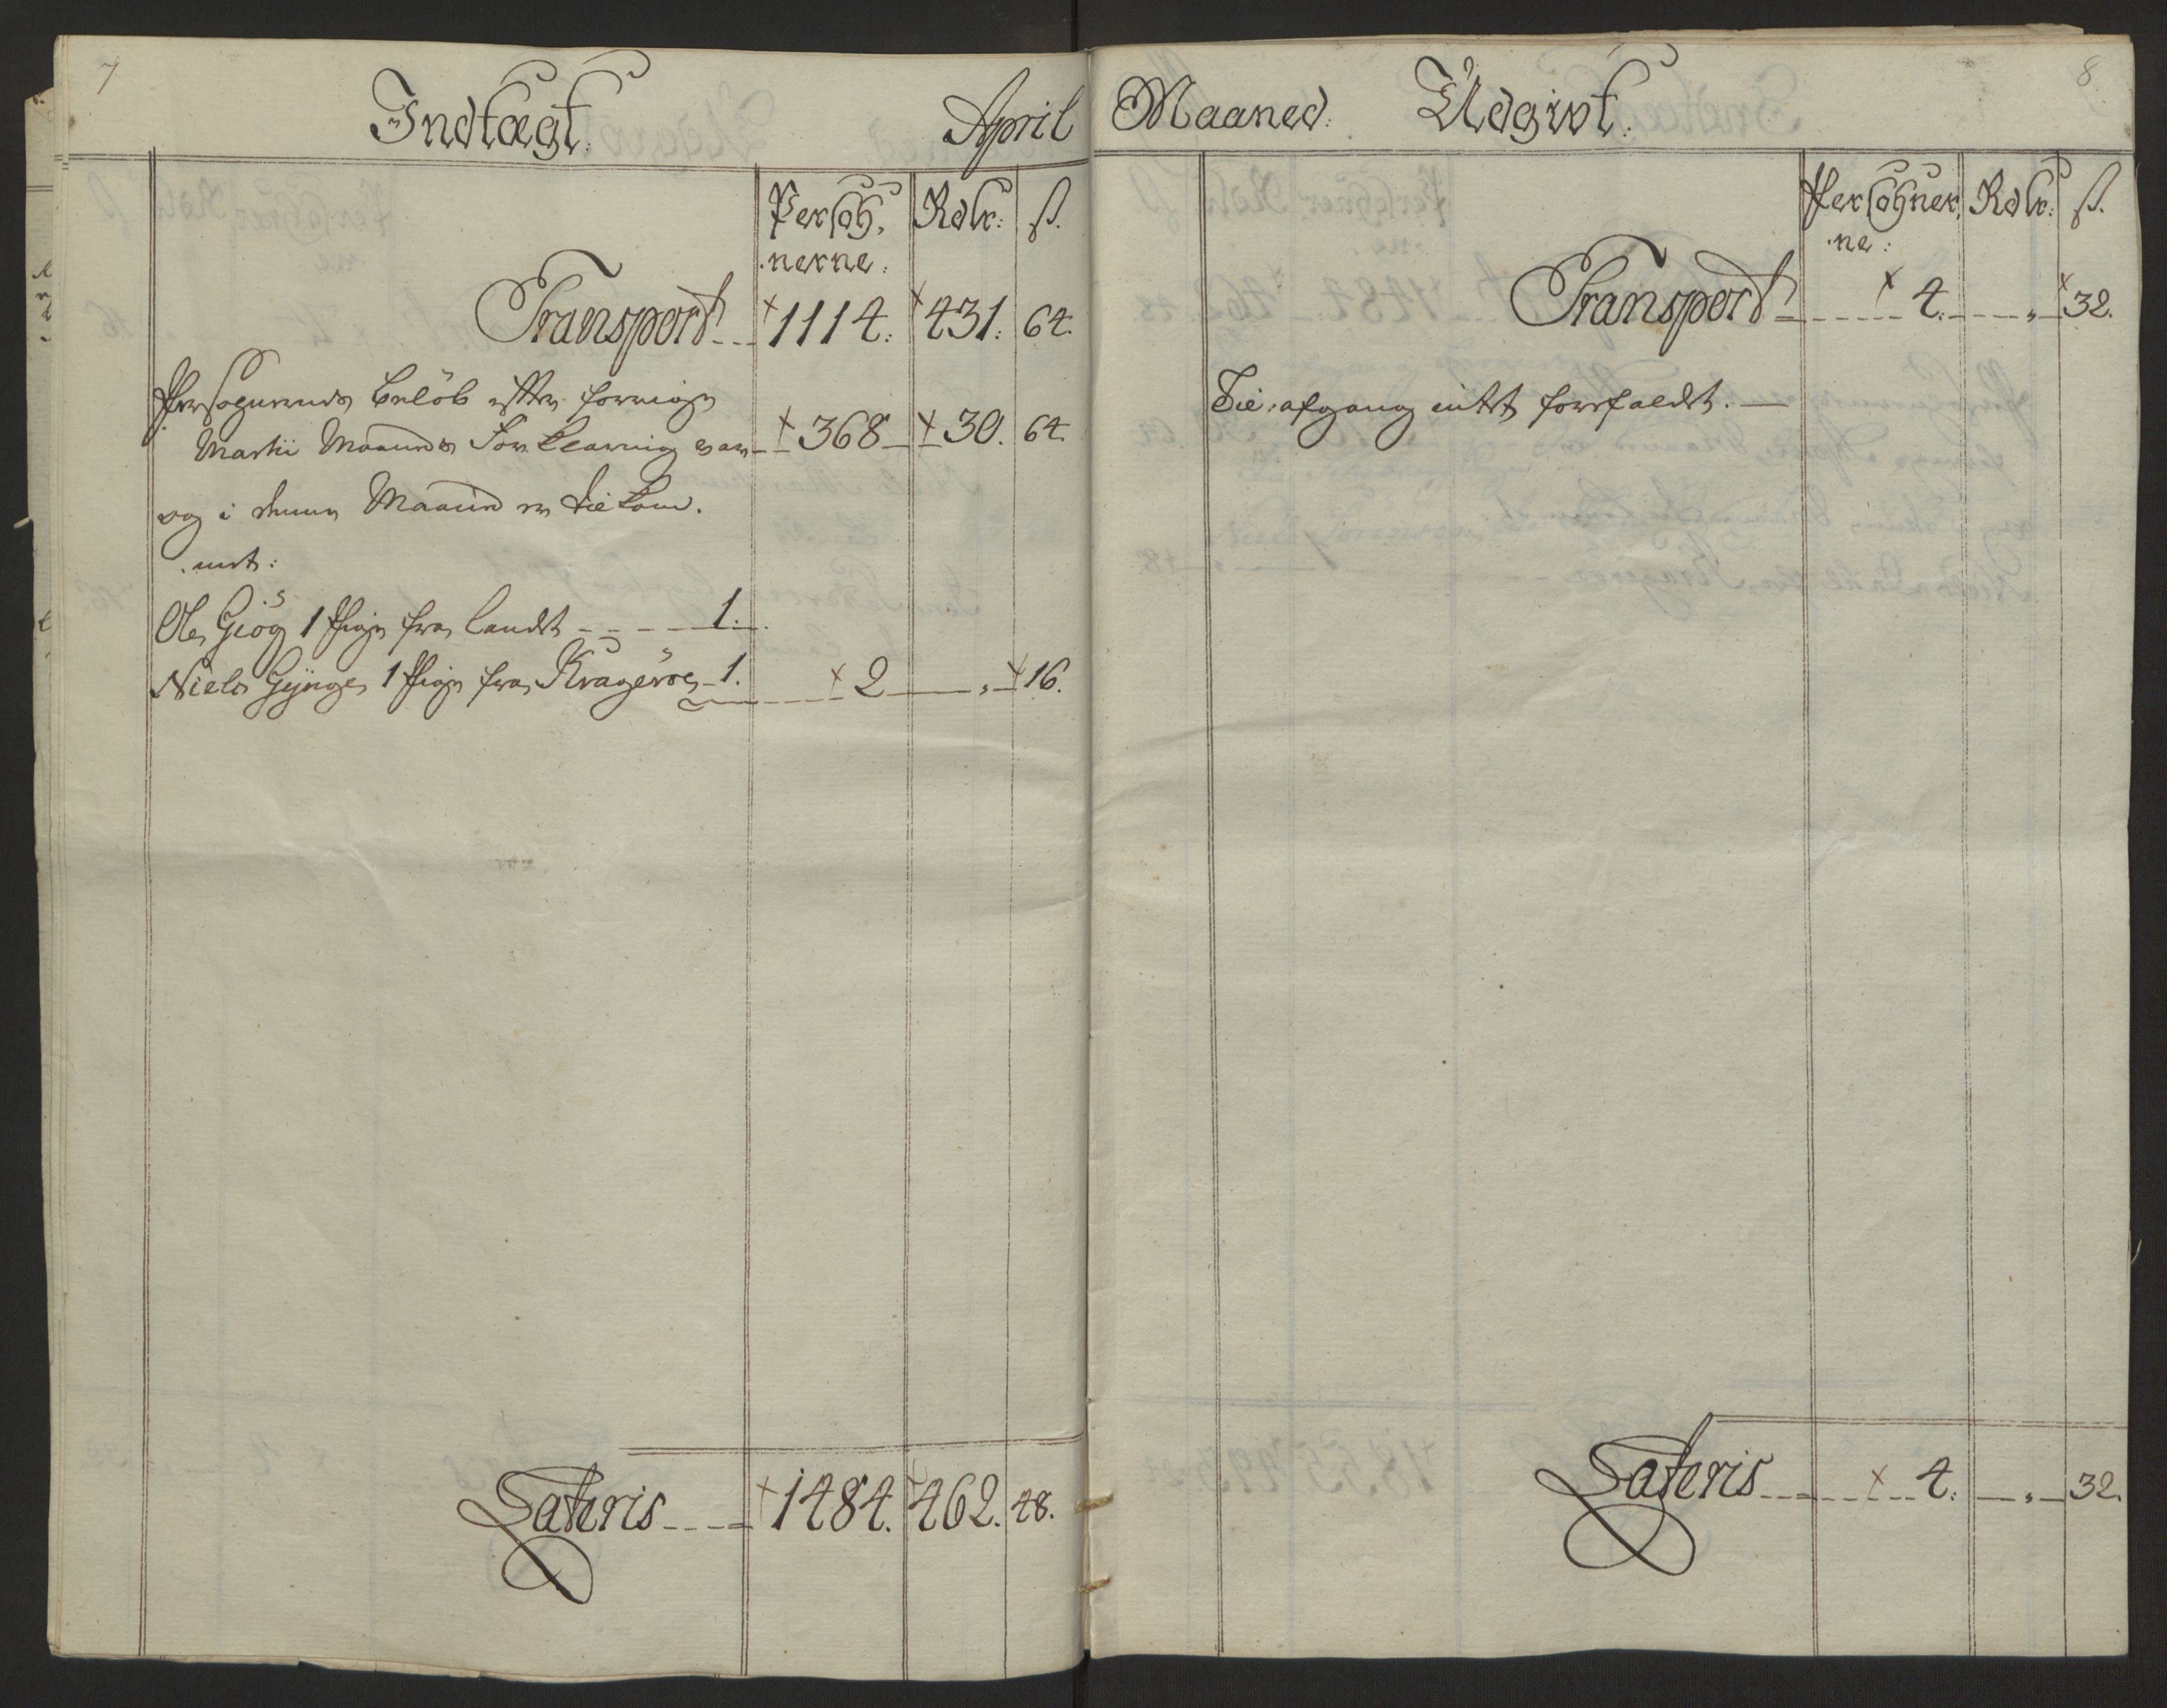 7
Indtægt. April
Persoh, Rdlr: ß.
.nerne:
Transport 1114: 431: 64.
Persogunends belöb efter forrige
Martii Maaneds Forklaring var 368 30. 64.
og i denne Maaned er tilkom.
.met:
Ole Giög 1 Pige fra landet 1.
Niels Gynge 1 Pige fra Krageröe 1. 2 " 16.
Lateris 1484. 462. 48.
8.
Maaned: Udgivt:
Persohner, Rdlr: ß.
.ne:
Transport 4. " 32.
Til afgang intet forefaldet.
Lateris 4. " 32.